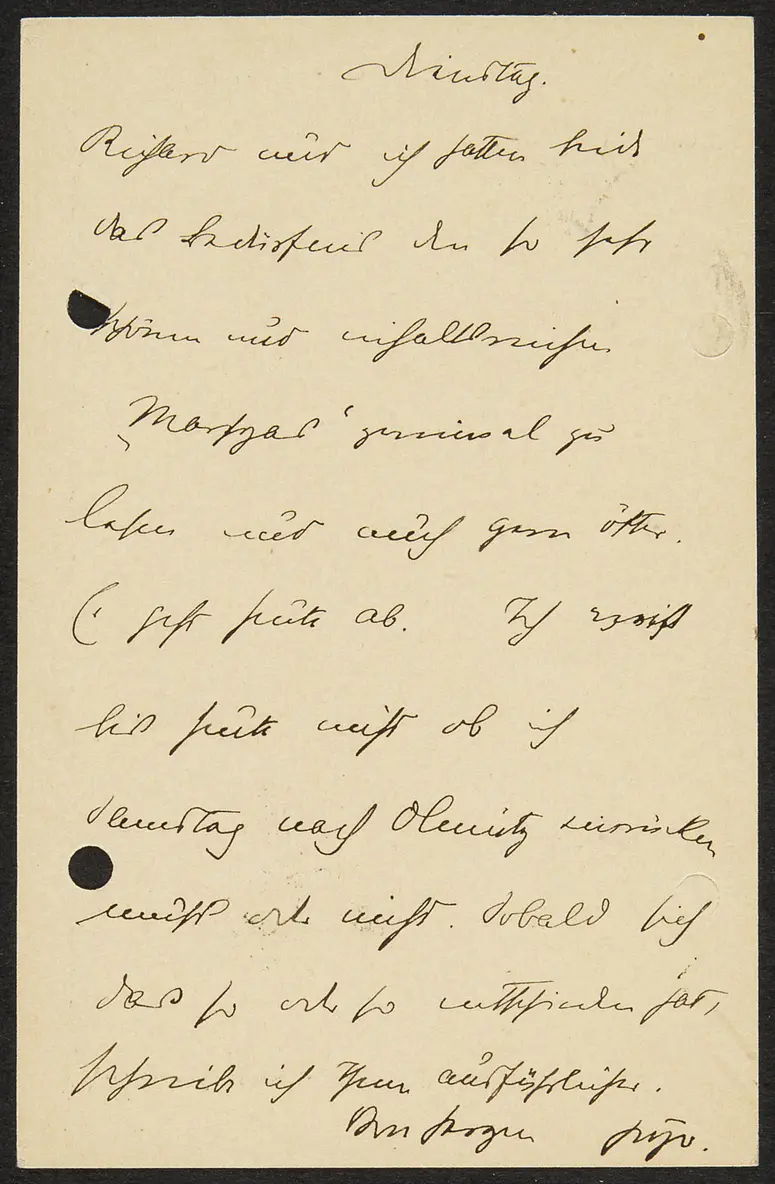 Dienstag.
Richard und ich hatten beide
das Bedürfnis den so sehr
schönen und inhaltsreichen
„Marsyas“ zweimal zu
lesen und auch gern öfter.
Er geht heute ab. Ich weiß
bis heute nicht ob ich
Samstag nach Olmütz einrücken
muß oder nicht. Sobald sich
das so oder so entschieden hat,
schreibe ich Ihnen ausführlicher.
Von Herzen Hugo.